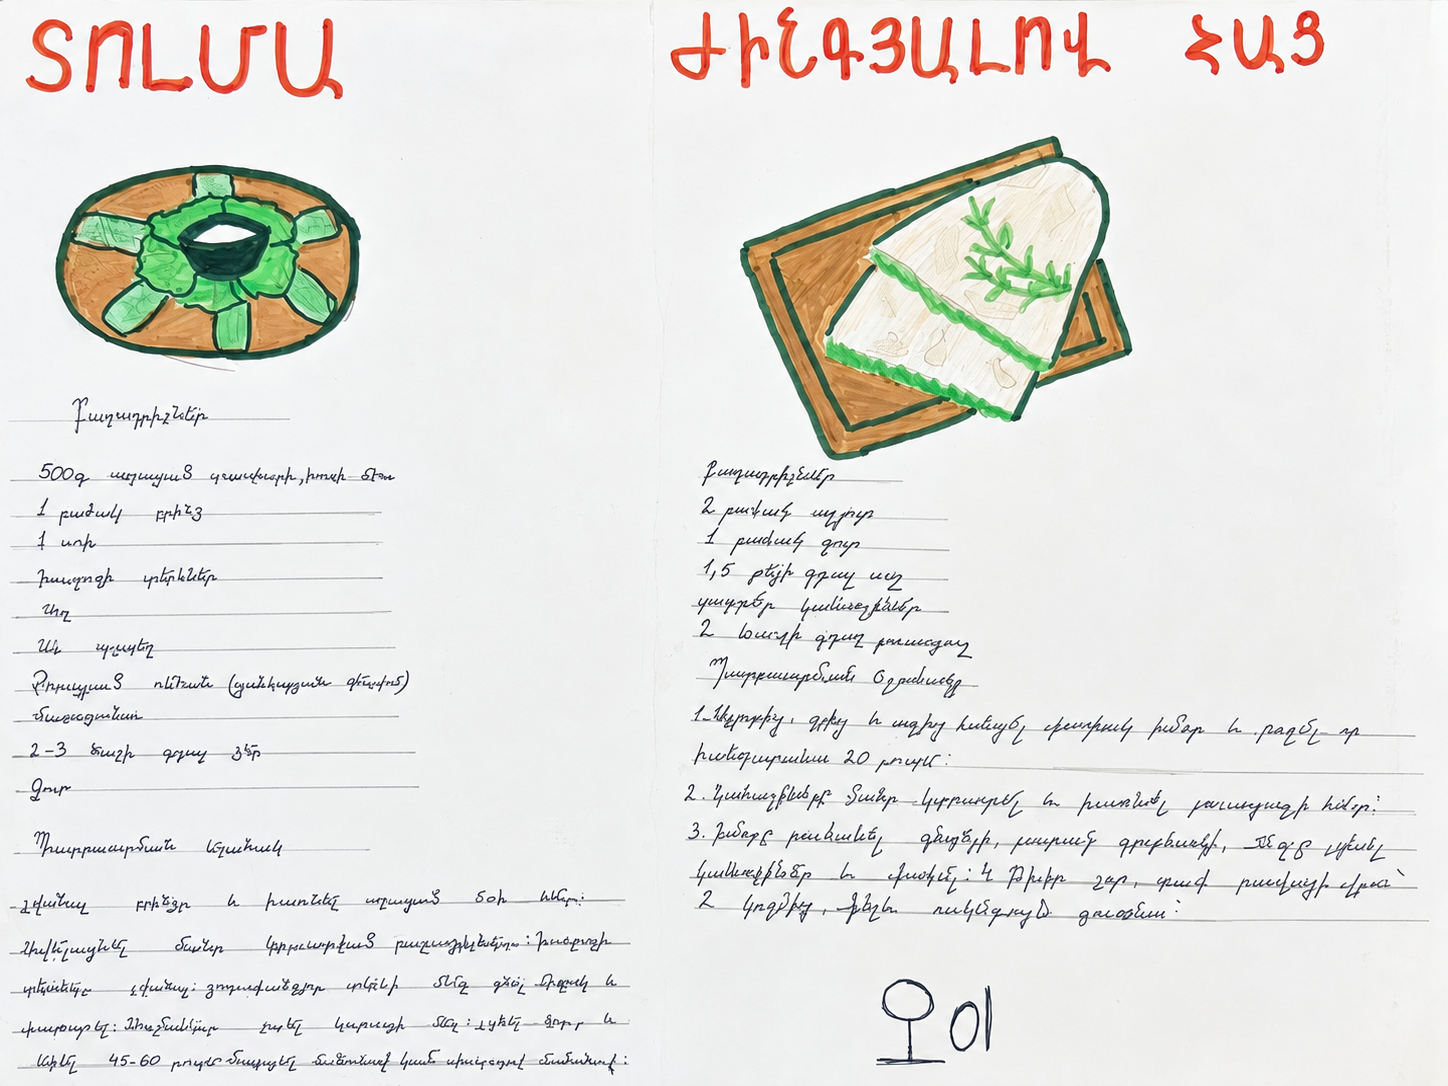 ՏՈԼՄԱ
Բաղադրիչներ
500գ աղացած տավարի, խոզի միս
1 բաժակ բրինձ
1 սոխ
խաղողի տերևներ
Աղ
Սև պղպեղ
Չորացած ռեհան (ցանկացած
մածուցիկ
2-3 ճաշի գդալ ձեթ
Ջուր
Պատրաստման եղանակ
Լվանալ բրինձը և խառնել աղացած մսի հետ:
Ավելացնել մանր կտրատած բաղադրիչները: Խաղողի
տերևները լվանալ: յուրաքանչյուր տերևի մեջ դնել միջուկ և
փաթաթել: շարել կաթսայի մեջ: լցնել ջուր և
եփել 45-60 րոպե մատուցել մածունով կամ
ԺԻՆԳՅԱԼՈՎ ՀԱՑ
Բաղադրիչներ
2 բաժակ ալյուր
1 բաժակ ջուր
1,5 թեյի գդալ աղ
տարբեր կանաչիներ
2 ճաշի գդալ բուսայուղ
Պատրաստման եղանակը
1. Ալյուրից, ջրից և աղից հունցել փափուկ խմոր և թողնել որ
հանգստանա 20 րոպե:
2. Կանաչիները մանր կտրատել և խառնել բուսայուղի հետ:
3. Խմորը բաժանել գնդերի, բարակ գրտնակել, մեջը լցնել
կանաչիներ և փակել: 4 Թխել չոր, տաք թավայի վրա
2 կողմից, մինչև ոսկեգույն դառնա: